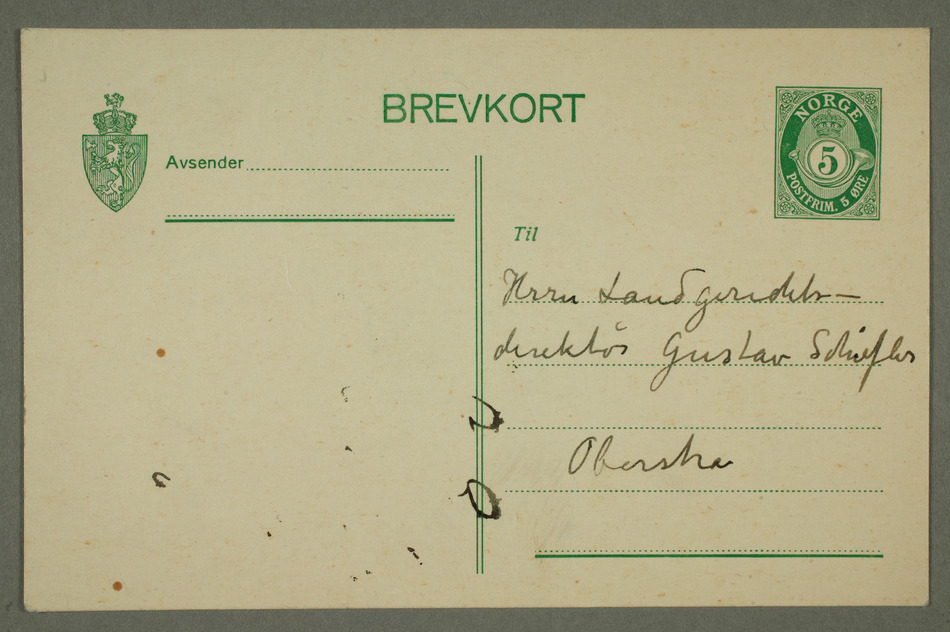 BREVKORT
NORGE
5
POSTFRIM. 5 ØRE
Avsender
Til
Herrn Landgerichts-
direktör Gustav Schiefler
Oberstra